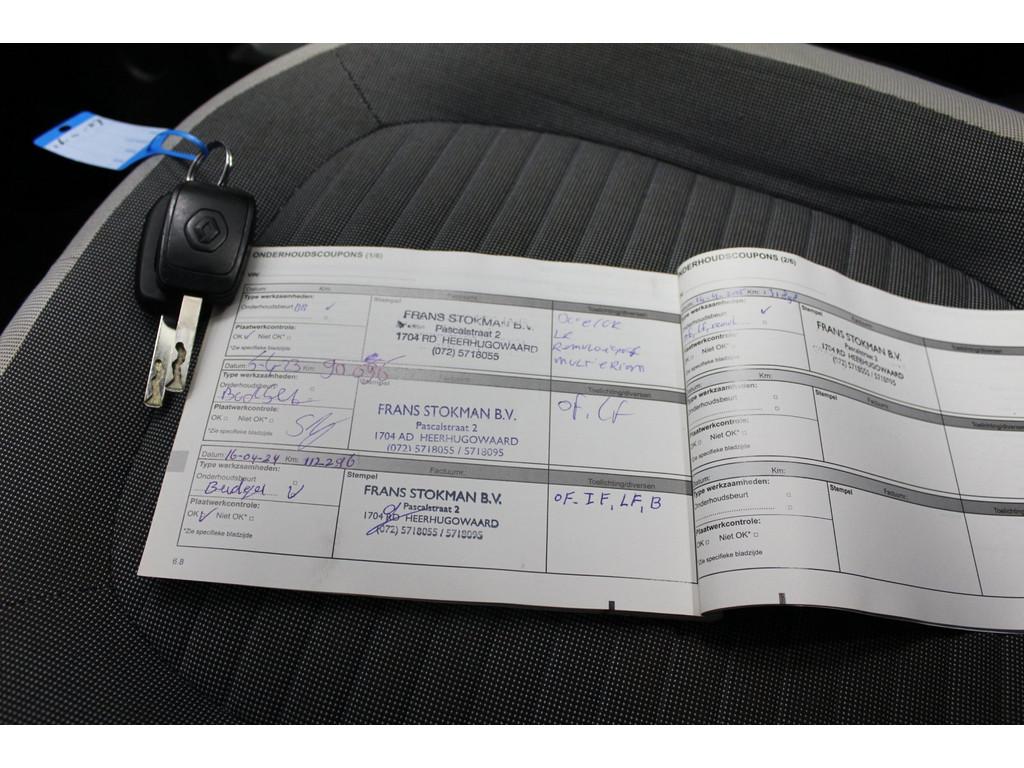 ONDERHOUDSCOUPONS (1/6)
VIN:
Datum: Km:
Type werkzaamheden:
Onderhoudsbeurt
Plaatwerkcontrole:
OK Niet OK*
*Zie specifieke bladzijde
Stempel
FRANS STOKMAN B.V.
Pascalstraat 2
1704 RD HEERHUGOWAARD
(072) 5718055
Datum: Km: 90.096
Type werkzaamheden:
Onderhoudsbeurt
Plaatwerkcontrole:
OK Niet OK*
*Zie specifieke bladzijde
Stempel
FRANS STOKMAN B.V.
Pascalstraat 2
1704 AD HEERHUGOWAARD
(072) 5718055 / 5718095
Toelichting/diversen
OF, LF
Datum: 16-04-24 Km: 112-296
Type werkzaamheden:
Onderhoudsbeurt
Budget
Plaatwerkcontrole:
OK Niet OK*
*Zie specifieke bladzijde
Stempel
Factuurnr.
FRANS STOKMAN B.V.
Pascalstraat 2
1704 RD HEERHUGOWAARD
(072) 5718055 / 5718095
Toelichting/diversen
OF. IF, LF, B
6.8
ONDERHOUDSCOUPONS (2/6)
Km:
Type werkzaamheden:
Onderhoudsbeurt
Plaatwerkcontrole:
OK Niet OK*
*Zie specifieke bladzijde
Stempel
FRANS STOKMAN B.V.
Pascalstraat 2
1704 RD HEERHUGOWAARD
(072) 5718055 / 5718095
Datum: Km:
Type werkzaamheden:
Onderhoudsbeurt
Plaatwerkcontrole:
OK Niet OK*
*Zie specifieke bladzijde
Stempel
Factuurnr.
Datum: Km:
Type werkzaamheden:
Onderhoudsbeurt
Plaatwerkcontrole:
OK Niet OK*
*Zie specifieke bladzijde
Stempel
Factuurnr.